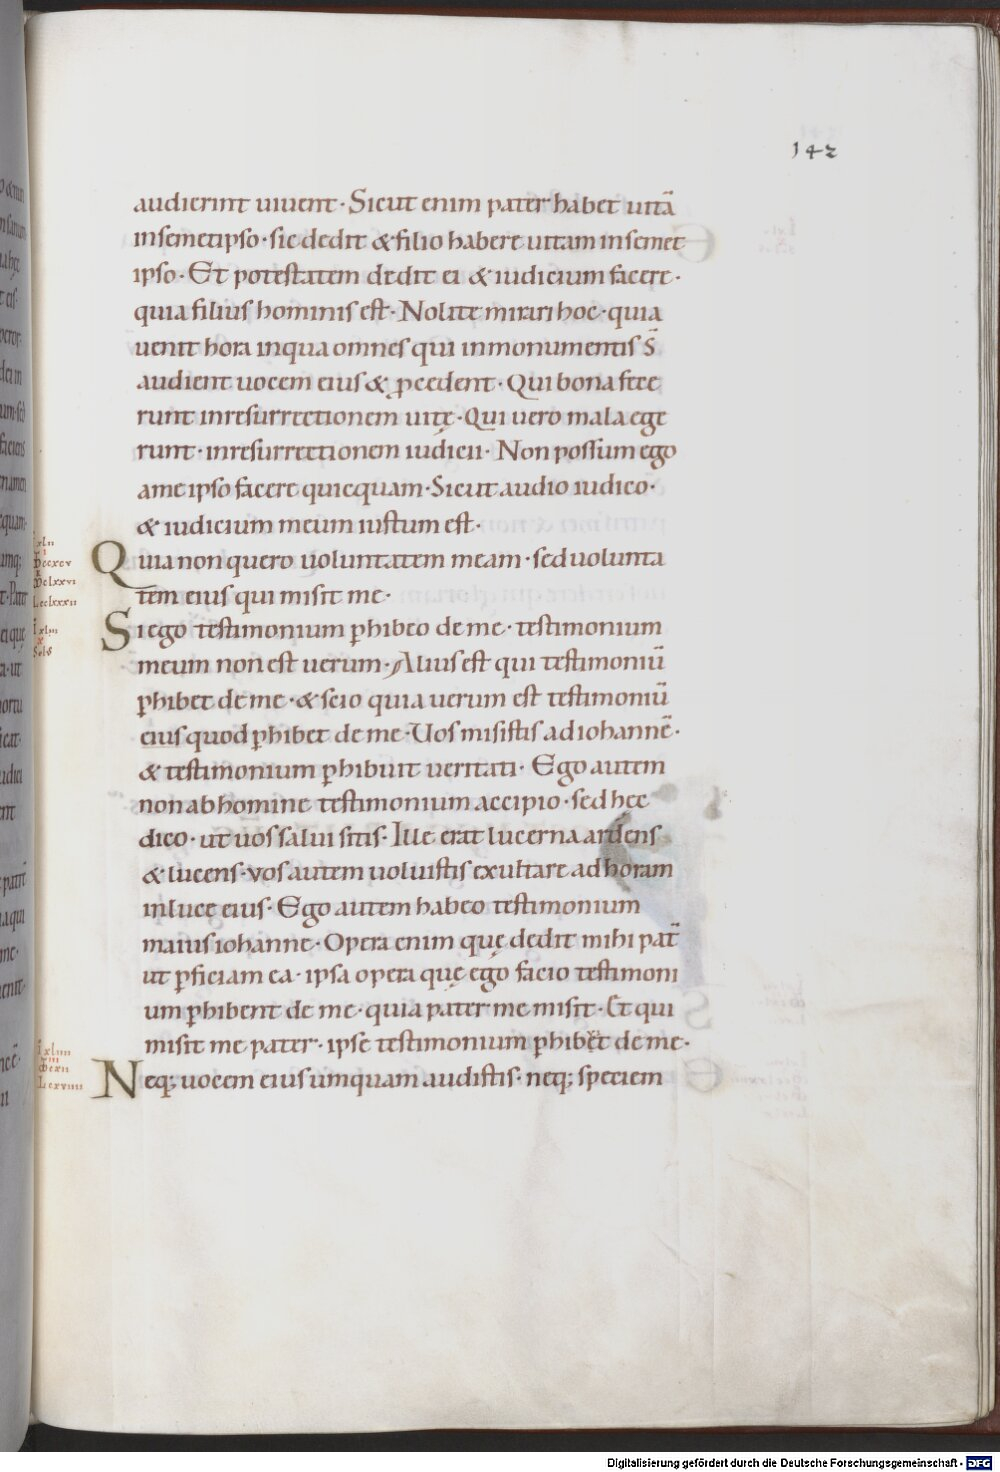 142
audierint uiuent · Sicut enim pater habet uitā
insemetipso · sic dedit & filio habere uitam insemet
ipso · Et potestatem dedit ei & iudicium facere ·
quia filius hominis est · Nolite mirari hoc · quia
uenit hora inqua omnes qui inmonumentis s̄
audient uocem eius & ꝓcedent · Qui bona fece
runt inresurrectionem uitę · Qui uero mala ege
runt · inresurrectionem iudicii · Non possum ego
ame ipso facere quicquam · Sicut audio iudico ·
& iudicium meum iustum est ·
Quia non quero uoluntatem meam · sed uolunta
tem eius qui misit me ·
Si ego testimonium ꝑhibeo de me · testimonium
meum non est uerum · Alius est qui testimoniū
ꝑhibet de me · & scio quia uerum est testimoniū
eius quod ꝑhibet de me · Uos misistis ad iohannē ·
& testimonium ꝑhibuit ueritati · Ego autem
non ab homine testimonium accipio · sed hec
dico · ut uos salui sitis · Ille erat lucerna ardens
& lucens · vos autem uoluistis exultare ad horam
inluce eius · Ego autem habeo testimonium
maius iohanne · Opera enim quę dedit mihi pat̄
ut ꝑficiam ea · ipsa opera quę ego facio testimoni
um ꝑhibent de me · quia pater me misit · Et qui
misit me pater · ipse testimonium ꝑhibet de me ·
Neq; uocem eius umquam audistis · neq; speciem
Digitalisierung gefördert durch die Deutsche Forschungsgemeinschaft - DFG